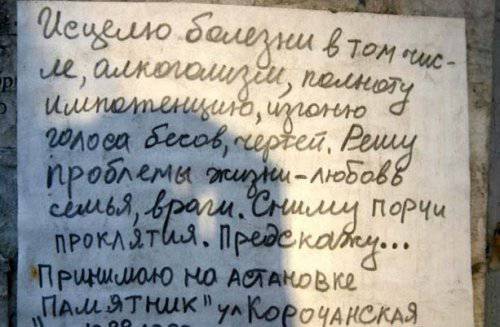 Исцелю болезни в том чис-
ле, алкоголизм, полноту
импотенцию, изгоню
голоса бесов, чертей. Решу
проблемы жизни-любовь
семья, враги. Сниму порчи
проклятия. Предскажу...
Принимаю на астановке
"Памятник" ул Корочанская